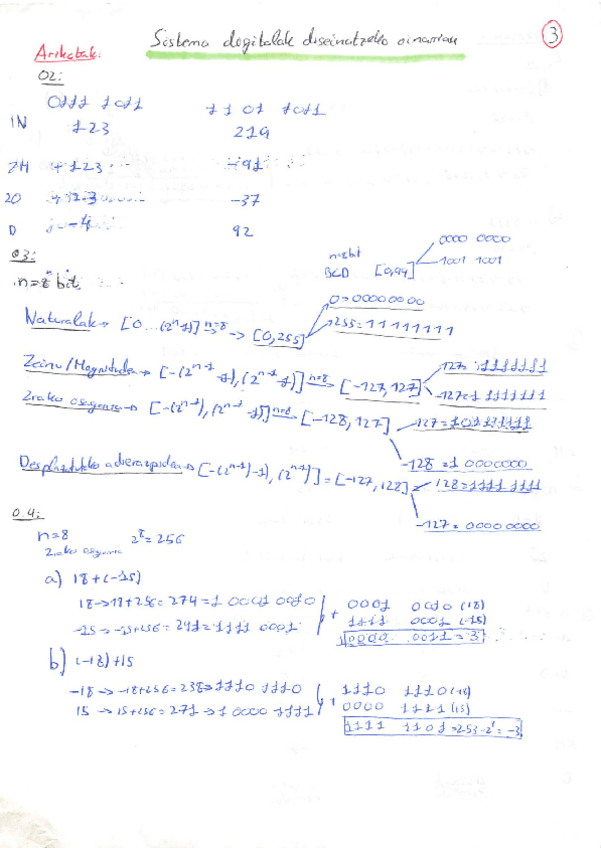 Sistema digitalak diseinatzeko oinarriak
3
Ariketak:
02:
0111 1011 1101 1011
1N 123 219
ZM +123 -91
2O +123 -37
D -4 92
03:
n=8 bit.
n=8bit
BCD [0,99]
0000 0000
1001 1001
Naturalak → [0...(2ⁿ-1)] n=8 → [0,255]
0=00000000
255=11111111
Zeinu/Magnitudea → [-(2ⁿ⁻¹-1),(2ⁿ⁻¹-1)] n=8 → [-127,127]
-127=1 1111111
2rako osagarria → [-(2ⁿ⁻¹),(2ⁿ⁻¹-1)] n=8 → [-128,127]
-128=1 0000000
Desplazatuko adierazpidea → [-(2ⁿ⁻¹)-1),(2ⁿ⁻¹)] = [-127,128]
128=1111 1111
-127=0000 0000
0.4:
n=8 2⁸=256
2rako osagarria
a) 18+(-15)
18→18+256=274=1 0001 0010
-15→-15+256=241=1111 0001
+ 0001 0010 (18)
1111 0001 (-15)
1 0000 0011=3
b) (-18)+15
-18→-18+256=238→1110 1110
15→15+256=271→1 0000 1111
+ 1110 1110 (-18)
0000 1111 (15)
1111 1101=253-2⁸=-3